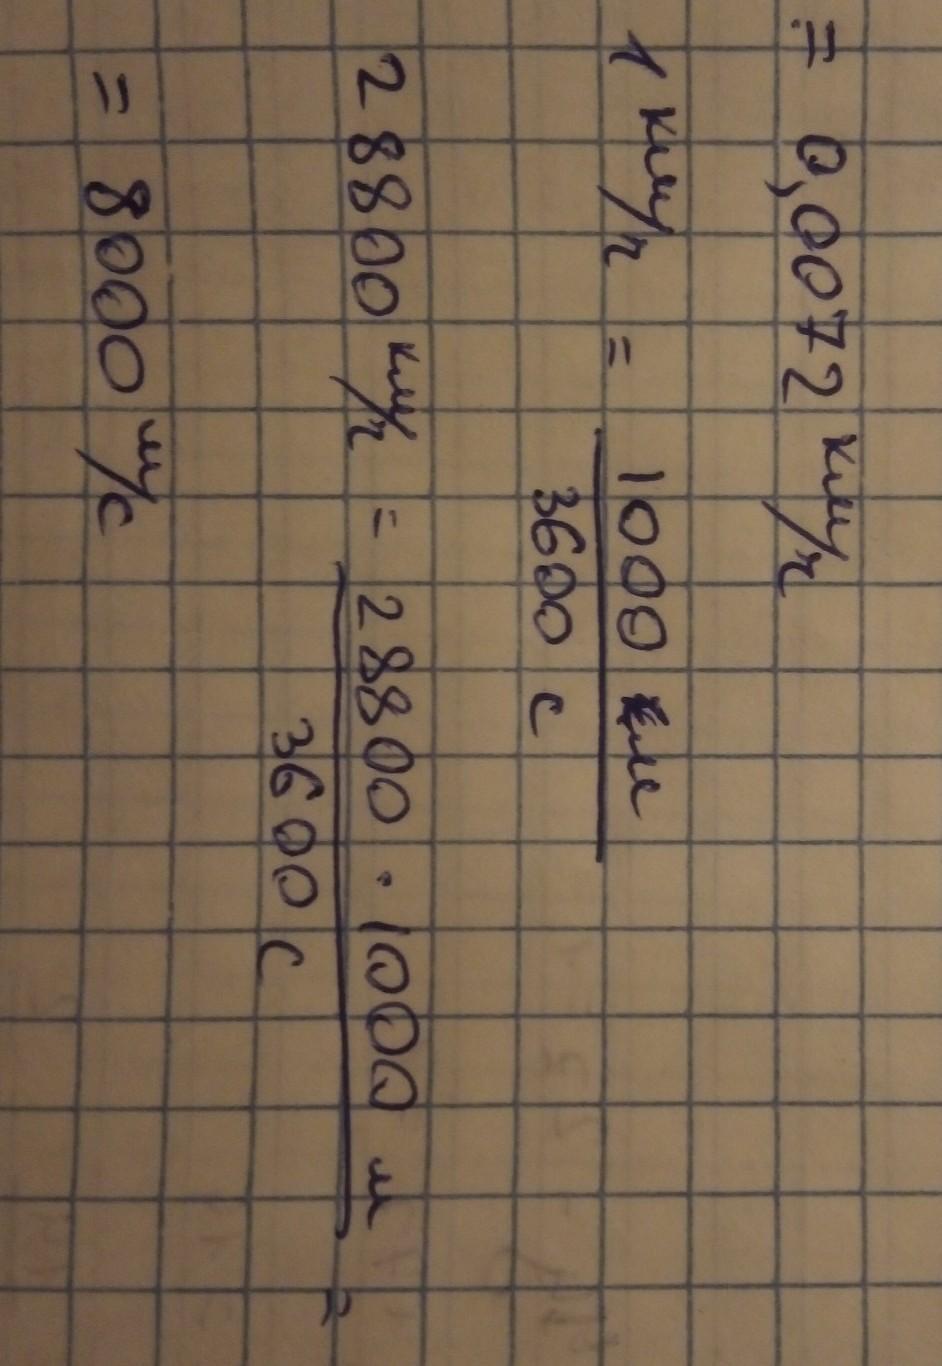 = 0,0072 км/ч
1 км/ч = 1000 м
3600 с
28800 км/ч = 28800 · 1000 м =
3600 с
= 8000 м/с